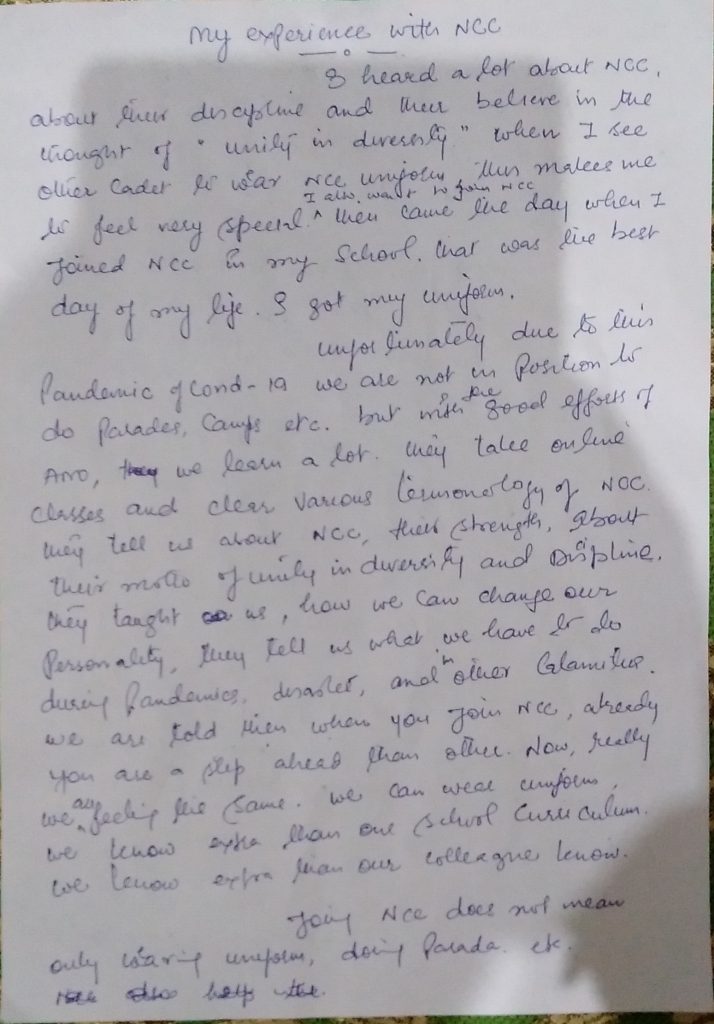 My experience with NCC
I heard a lot about NCC,
about their discipline and their believe in the
thought of "unity in diversity" when I see
other Cadet to wear NCC uniform this makes me
I also want to join NCC
to feel very special. ^ Then came the day when I
Joined NCC in my School. that was the best
day of my life. I got my uniform.
unfortunately due to this
Pandemic of Covid-19 we are not in Position to
do Parades, Camps etc. but with the good efforts of
ANO, we learn a lot. they take online
Classes and clear various termonology of NCC.
they tell us about NCC, their strength, About
their motto of unity in diversity and Discipline.
they taught us, how we can change our
Personality, they tell us what we have to do
during Pandemics, disaster, and in other Calamities.
we are told then when you Join NCC, already
you are a step ahead than other. Now, really
we are feeling the same. we can wear uniform,
we know extra than our School Curriculum.
we know extra than our colleague know.
Joing NCC does not mean
only wearing uniform, doing Parada. etc.